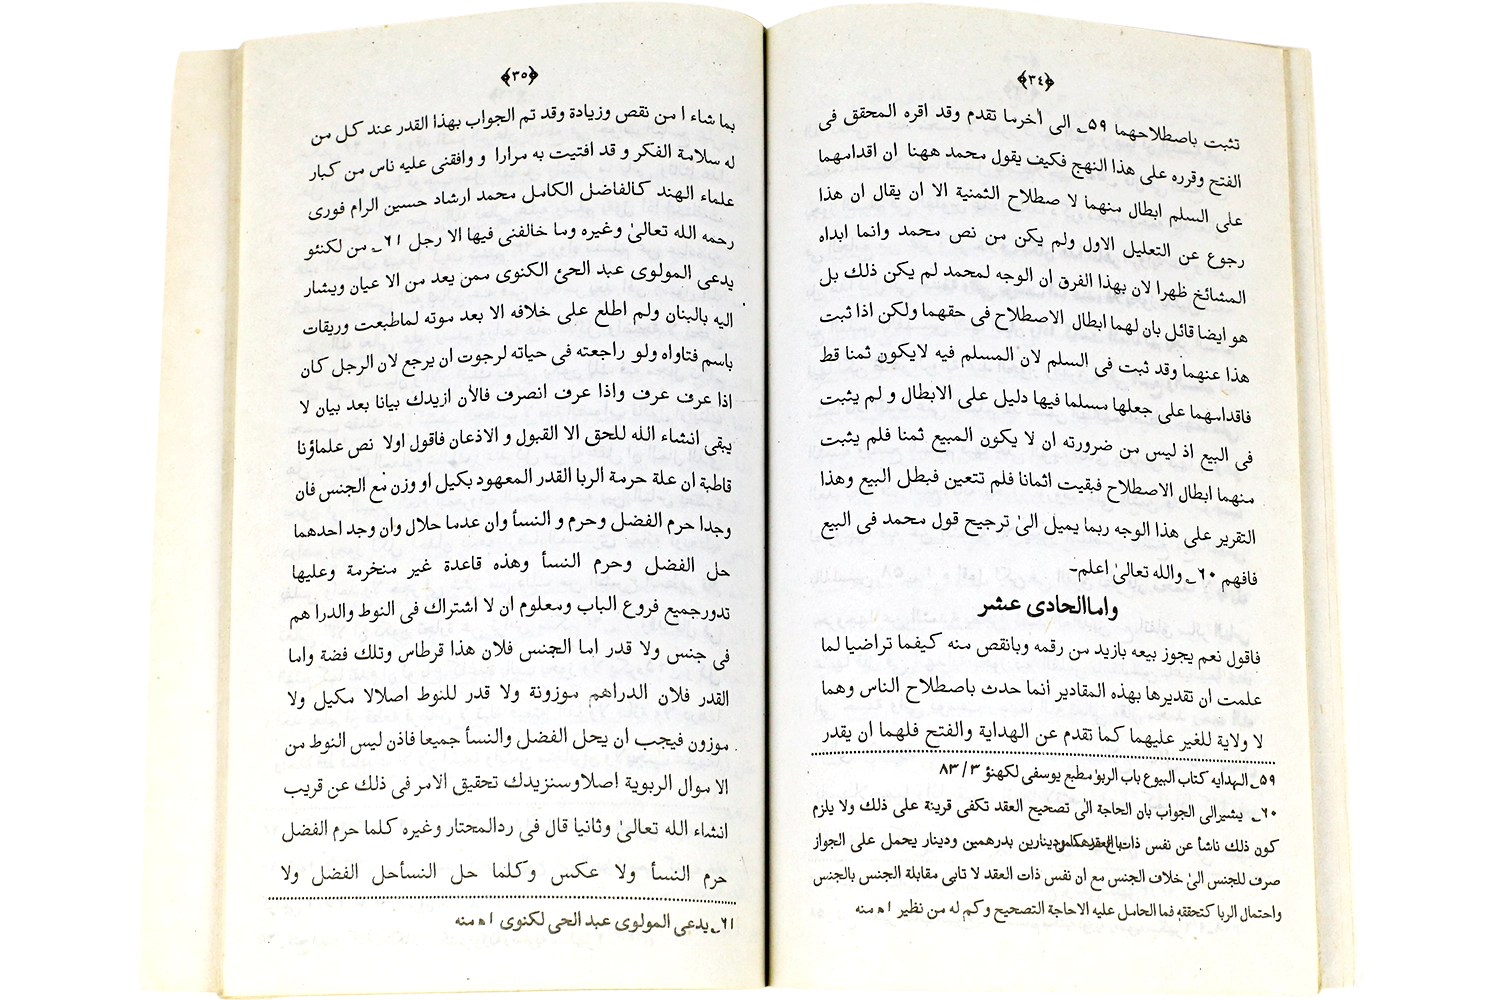 ﴿٣٤﴾
تثبت باصطلاحهما ٥٩؂ الى أخرما تقدم وقد اقره المحقق فى
الفتح وقرره على هذا النهج فكيف يقول محمد ههنا ان اقدامهما
على السلم ابطال منهما لا صطلاح الثمنية الا ان يقال ان هذا
رجوع عن التعليل الاول ولم يكن من نص محمد وانما ابداه
المشائخ ظهرا لان بهذا الفرق ان الوجه لمحمد لم يكن ذلك بل
هو ايضا قائل بان لهما ابطال الاصطلاح فى حقهما ولكن اذا ثبت
هذا عنهما وقد ثبت فى السلم لان المسلم فيه لايكون ثمنا قط
فاقدامهما على جعلها مسلما فيها دليل على الابطال و لم يثبت
فى البيع اذ ليس من ضرورته ان لا يكون المبيع ثمنا فلم يثبت
منهما ابطال الاصطلاح فبقيت اثمانا فلم تتعين فبطل البيع وهذا
التقرير على هذا الوجه ربما يميل الىٰ ترجيح قول محمد فى البيع
فافهم ٦٠؂ والله تعالىٰ اعلم۔
واماالحادى عشر
فاقول نعم يجوز بيعه بازيد من رقمه وبانقص منه كيفما تراضيا لما
علمت ان تقديرها بهذه المقادير أنما حدث باصطلاح الناس وهما
لا ولاية للغير عليهما كما تقدم عن الهداية والفتح فلهما ان يقدر
٥٩؂ الهدايه كتاب البيوع باب الربوٰ مطبع يوسفى لكهنؤ ٣/ ٨٣
٦٠؂ يشيرالى الجواب بان الحاجة الىٰ تصحيح العقد تكفى قرينة على ذلك ولا يلزم
كون ذلك ناشأ عن نفس ذات العقد كمن باع درهما ودينارين بدرهمين ودينار يحمل على الجواز
صرف للجنس الىٰ خلاف الجنس مع ان نفس ذات العقد لا تابى مقابلة الجنس بالجنس
واحتمال الربا كتحققه فما الحامل عليه الاحاجة التصحيح وكم له من نظير ا ه منه
﴿٣٥﴾
بما شاء ا من نقص وزيادة وقد تم الجواب بهذا القدر عند كل من
له سلامة الفكر و قد افتيت به مرارا و وافقنى عليه ناس من كبار
علماء الهند كالفاضل الكامل محمد ارشاد حسين الرام فورى
رحمه الله تعالىٰ وغيره وما خالفنى فيها الا رجل ٦١؂ من لكنئو
يدعى المولوى عبد الحئ الكنوى ممن يعد من الا عيان ويشار
اليه بالبنان ولم اطلع على خلافه الا بعد موته لماطبعت وريقات
باسم فتاواه ولو راجعته فى حياته لرجوت ان يرجع لان الرجل كان
اذا عرف عرف واذا عرف انصرف فالأن ازيدك بيانا بعد بيان لا
يبقى انشاء الله للحق الا القبول و الاذعان فاقول اولا نص علماؤنا
قاطبة ان علة حرمة الربا القدر المعهود بكيل او وزن مع الجنس فان
وجدا حرم الفضل وحرم و النسأ وان عدما حلال وان وجد احدهما
حل الفضل وحرم النسأ وهذه قاعدة غير منخرمة وعليها
تدورجميع فروع الباب ومعلوم ان لا اشتراك فى النوط والدرا هم
فى جنس ولا قدر اما الجنس فلان هذا قرطاس وتلك فضة واما
القدر فلان الدراهم موزونة ولا قدر للنوط اصلالا مكيل ولا
موزون فيجب ان يحل الفضل والنسأ جميعا فاذن ليس النوط من
الا موال الربوية اصلاوسنزيدك تحقيق الامر فى ذلك عن قريب
انشاء الله تعالىٰ وثانيا قال فى ردالمحتار وغيره كلما حرم الفضل
حرم النسأ ولا عكس وكلما حل النسأحل الفضل ولا
٦١؂ يدعى المولوى عبد الحى لكنوى ا ه منه